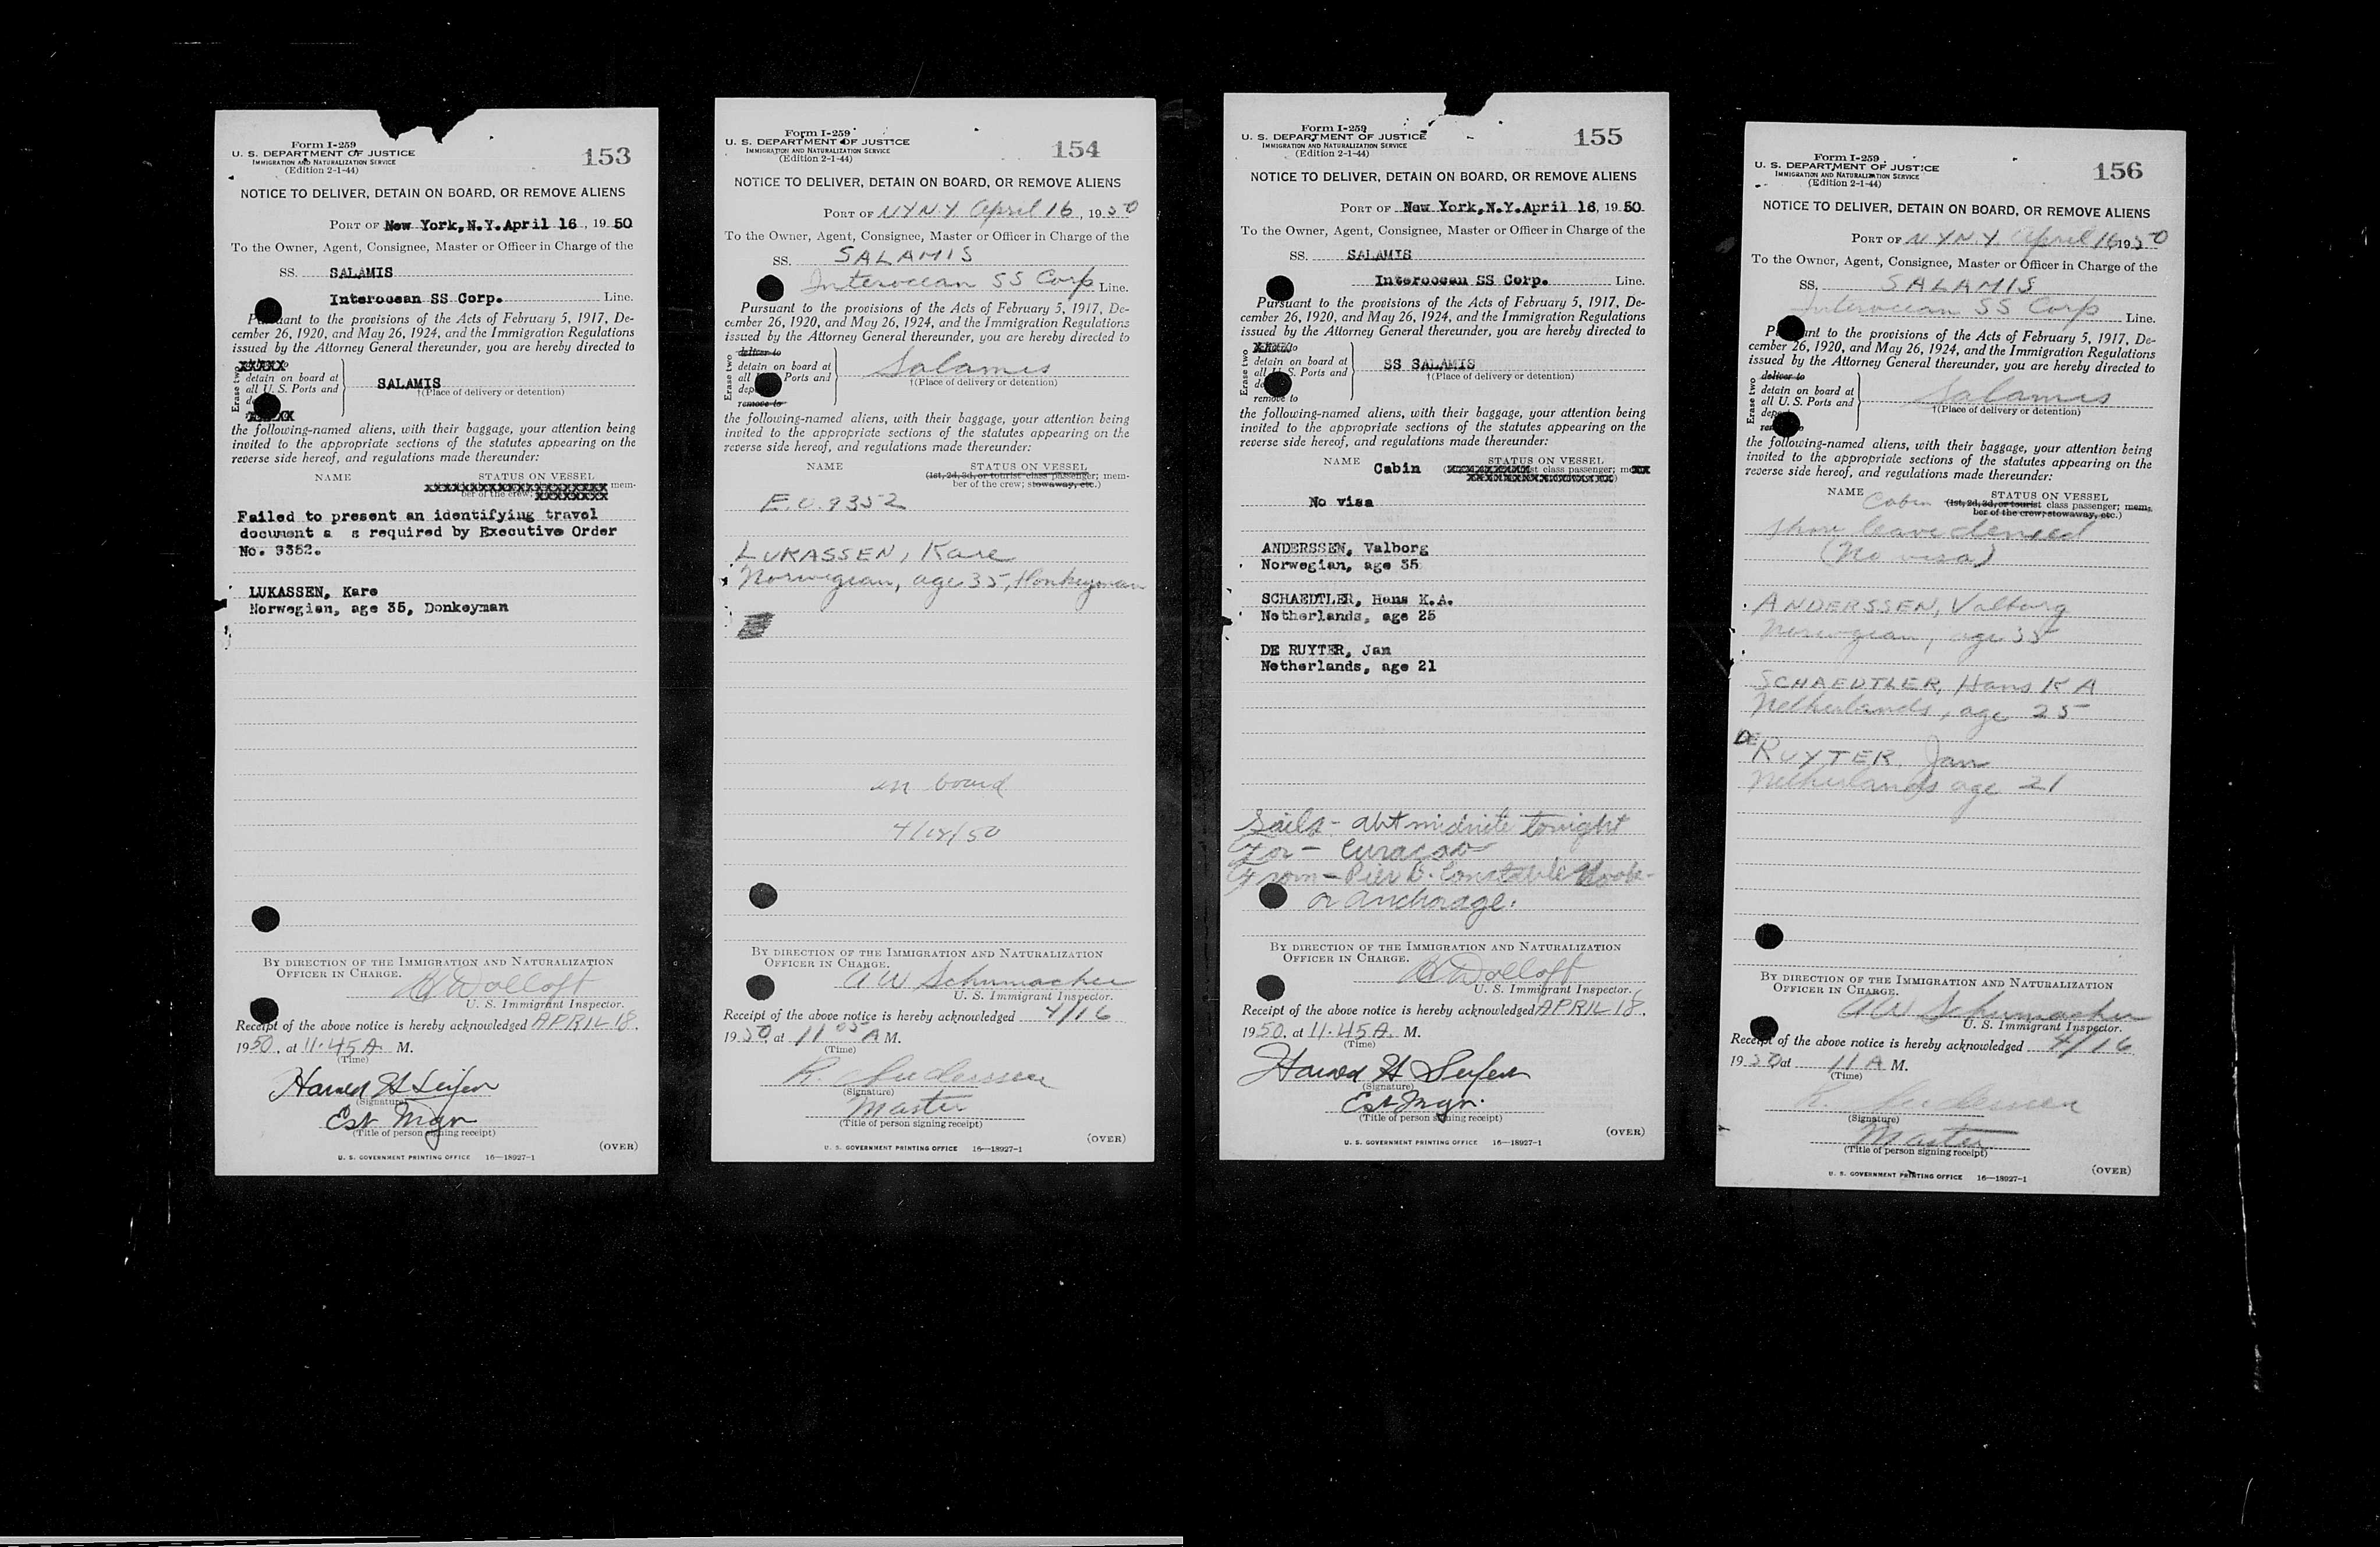 Form I-259
U. S. DEPARTMENT OF JUSTICE
IMMIGRATION AND NATURALIZATION SERVICE
(Edition 2-1-44)
153
NOTICE TO DELIVER, DETAIN ON BOARD, OR REMOVE ALIENS
PORT OF New York, N.Y. April 16, 1950
To the Owner, Agent, Consignee, Master or Officer in Charge of the
SS. SALAMIS
Interocean SS Corp. Line.
Pursuant to the provisions of the Acts of February 5, 1917, De-
cember 26, 1920, and May 26, 1924, and the Immigration Regulations
issued by the Attorney General thereunder, you are hereby directed to
XXXXX
Erase two
detain on board at
all U. S. Ports and
SALAMIS
†(Place of delivery or detention)
the following-named aliens, with their baggage, your attention being
invited to the appropriate sections of the statutes appearing on the
reverse side hereof, and regulations made thereunder:
NAME STATUS ON VESSEL
XXXXXXXXXXXXXXXXXXXXXXX mem-
ber of the crew; XXXXXXXX
Failed to present an identifying travel
document a s required by Executive Order
No. 9352.
LUKASSEN, Kare
Norwegian, age 35, Donkeyman
BY DIRECTION OF THE IMMIGRATION AND NATURALIZATION
OFFICER IN CHARGE.
U. S. Immigrant Inspector.
Receipt of the above notice is hereby acknowledged APRIL 18.
1950, at 11.45 A. M.
(Time)
Harold H Seifert
(Signature)
Est Mgr
(Title of person signing receipt)
(OVER)
U. S. GOVERNMENT PRINTING OFFICE 16—18927-1
Form I-259
U. S. DEPARTMENT OF JUSTICE
IMMIGRATION AND NATURALIZATION SERVICE
(Edition 2-1-44)
154
NOTICE TO DELIVER, DETAIN ON BOARD, OR REMOVE ALIENS
PORT OF NYNY April 16, 1950
To the Owner, Agent, Consignee, Master or Officer in Charge of the
SS. SALAMIS
Interocean SS Corp Line.
Pursuant to the provisions of the Acts of February 5, 1917, De-
cember 26, 1920, and May 26, 1924, and the Immigration Regulations
issued by the Attorney General thereunder, you are hereby directed to
Erase two
deliver to
detain on board at
all Ports and
remove to
Salamis
†(Place of delivery or detention)
the following-named aliens, with their baggage, your attention being
invited to the appropriate sections of the statutes appearing on the
reverse side hereof, and regulations made thereunder:
NAME STATUS ON VESSEL
(1st, 2d, 3d, or tourist class passenger; mem-
ber of the crew; stowaway, etc.)
E.O. 9352
LUKASSEN, Kare
Norwegian, age 35, Donkeyman
on board
4/18/50
BY DIRECTION OF THE IMMIGRATION AND NATURALIZATION
OFFICER IN CHARGE.
A W Schumacher
U. S. Immigrant Inspector.
Receipt of the above notice is hereby acknowledged 4/16
1950 at 11 05 A M.
(Time)
(Signature)
Master
(Title of person signing receipt)
(OVER)
U. S. GOVERNMENT PRINTING OFFICE 16—18927-1
Form I-259
U. S. DEPARTMENT OF JUSTICE
IMMIGRATION AND NATURALIZATION SERVICE
(Edition 2-1-44)
155
NOTICE TO DELIVER, DETAIN ON BOARD, OR REMOVE ALIENS
PORT OF New York, N.Y. April 16, 1950
To the Owner, Agent, Consignee, Master or Officer in Charge of the
SS. SALAMIS
Interocean SS Corp. Line.
Pursuant to the provisions of the Acts of February 5, 1917, De-
cember 26, 1920, and May 26, 1924, and the Immigration Regulations
issued by the Attorney General thereunder, you are hereby directed to
Erase two
to
detain on board at
all U. S. Ports and
remove to
SS SALAMIS
†(Place of delivery or detention)
the following-named aliens, with their baggage, your attention being
invited to the appropriate sections of the statutes appearing on the
reverse side hereof, and regulations made thereunder:
NAME STATUS ON VESSEL
Cabin class passenger;
No visa
ANDERSSEN, Valborg
Norwegian, age 35
SCHAEDTLER, Hans K.A.
Netherlands, age 25
DE RUYTER, Jan
Netherlands, age 21
Sails - abt midnite tonight
For - Curacao
From - Pier D. Constable Hook -
or anchorage.
BY DIRECTION OF THE IMMIGRATION AND NATURALIZATION
OFFICER IN CHARGE.
U. S. Immigrant Inspector.
Receipt of the above notice is hereby acknowledged APRIL 18.
1950, at 11.45 A. M.
(Time)
Harold H Seifert
(Signature)
Est Mgr.
(Title of person signing receipt)
(OVER)
U. S. GOVERNMENT PRINTING OFFICE 16—18927-1
Form I-259
U. S. DEPARTMENT OF JUSTICE
IMMIGRATION AND NATURALIZATION SERVICE
(Edition 2-1-44)
156
NOTICE TO DELIVER, DETAIN ON BOARD, OR REMOVE ALIENS
PORT OF NYNY. April 16 1950
To the Owner, Agent, Consignee, Master or Officer in Charge of the
SS. SALAMIS
Interocean SS Corp Line.
Pursuant to the provisions of the Acts of February 5, 1917, De-
cember 26, 1920, and May 26, 1924, and the Immigration Regulations
issued by the Attorney General thereunder, you are hereby directed to
Erase two
deliver to
detain on board at
all U. S. Ports and
Salamis
†(Place of delivery or detention)
the following-named aliens, with their baggage, your attention being
invited to the appropriate sections of the statutes appearing on the
reverse side hereof, and regulations made thereunder:
NAME STATUS ON VESSEL
Cabin (1st, 2d, 3d, or tourist class passenger; mem-
ber of the crew; stowaway, etc.)
Shore leave denied
(No visa)
ANDERSSEN, Valborg
Norwegian, age 35
SCHAEDTLER, Hans K A
Netherlands, age 25
DE RUYTER, Jan
Netherlands age 21
BY DIRECTION OF THE IMMIGRATION AND NATURALIZATION
OFFICER IN CHARGE.
A W Schumacher
U. S. Immigrant Inspector.
Receipt of the above notice is hereby acknowledged 4/16
1950 at 11 A M.
(Time)
(Signature)
Master
(Title of person signing receipt)
(OVER)
U. S. GOVERNMENT PRINTING OFFICE 16—18927-1